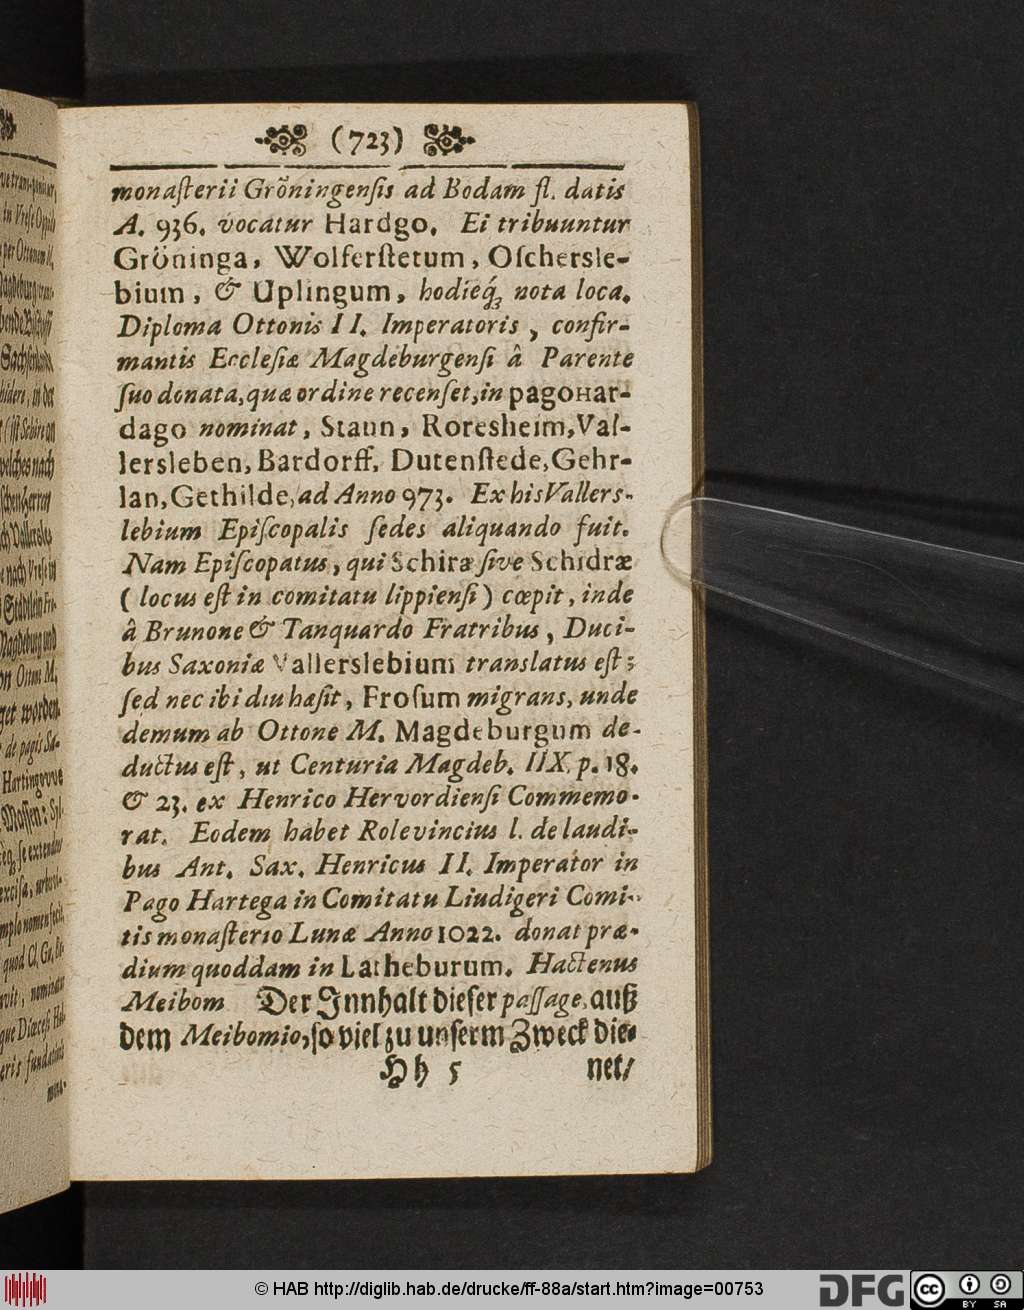 (723)
monaſterii Grőningenſis ad Bodam fl. datis
A. 936. vocatur Hardgo. Ei tribuuntur
Grőninga, Wolferſtetum, Oſchersle-
bium, & Uplingum, hodieq́; nota loca.
Diploma Ottonis II. Imperatoris, confir-
mantis Eccleſiæ Magdeburgenſi â Parente
ſuo donata, quæ ordine recenſet, in pago Har-
dago nominat, Staun, Roresheim, Val-
lersleben, Bardorff, Dutenſtede, Gehr-
lan, Gethilde, ad Anno 973. Ex his Vallers-
lebium Epiſcopalis ſedes aliquando fuit.
Nam Epiſcopatus, qui Schiræ ſive Schidræ
(locus eſt in comitatu lippienſi) cœpit, inde
â Brunone & Tanquardo Fratribus, Duci-
bus Saxoniæ Vallerslebium translatus eſt;
ſed nec ibi diu hæſit, Froſum migrans, unde
demum ab Ottone M. Magdeburgum de-
ductus eſt, ut Centuria Magdeb. IIX. p. 18.
& 23. ex Henrico Hervordienſi Commemo-
rat. Eodem habet Rolevincius l. de laudi-
bus Ant. Sax. Henricus II. Imperator in
Pago Hartega in Comitatu Liudigeri Comi-
tis monaſterio Lunæ Anno 1022. donat præ-
dium quoddam in Latheburum. Hactenus
Meibom Der Innhalt dieſer paſſage, auß
dem Meibomio, ſo viel zu unſerm Zweck die-
Hh 5 net/
© HAB http://diglib.hab.de/drucke/ff-88a/start.htm?image=00753
DFG
cc BY SA